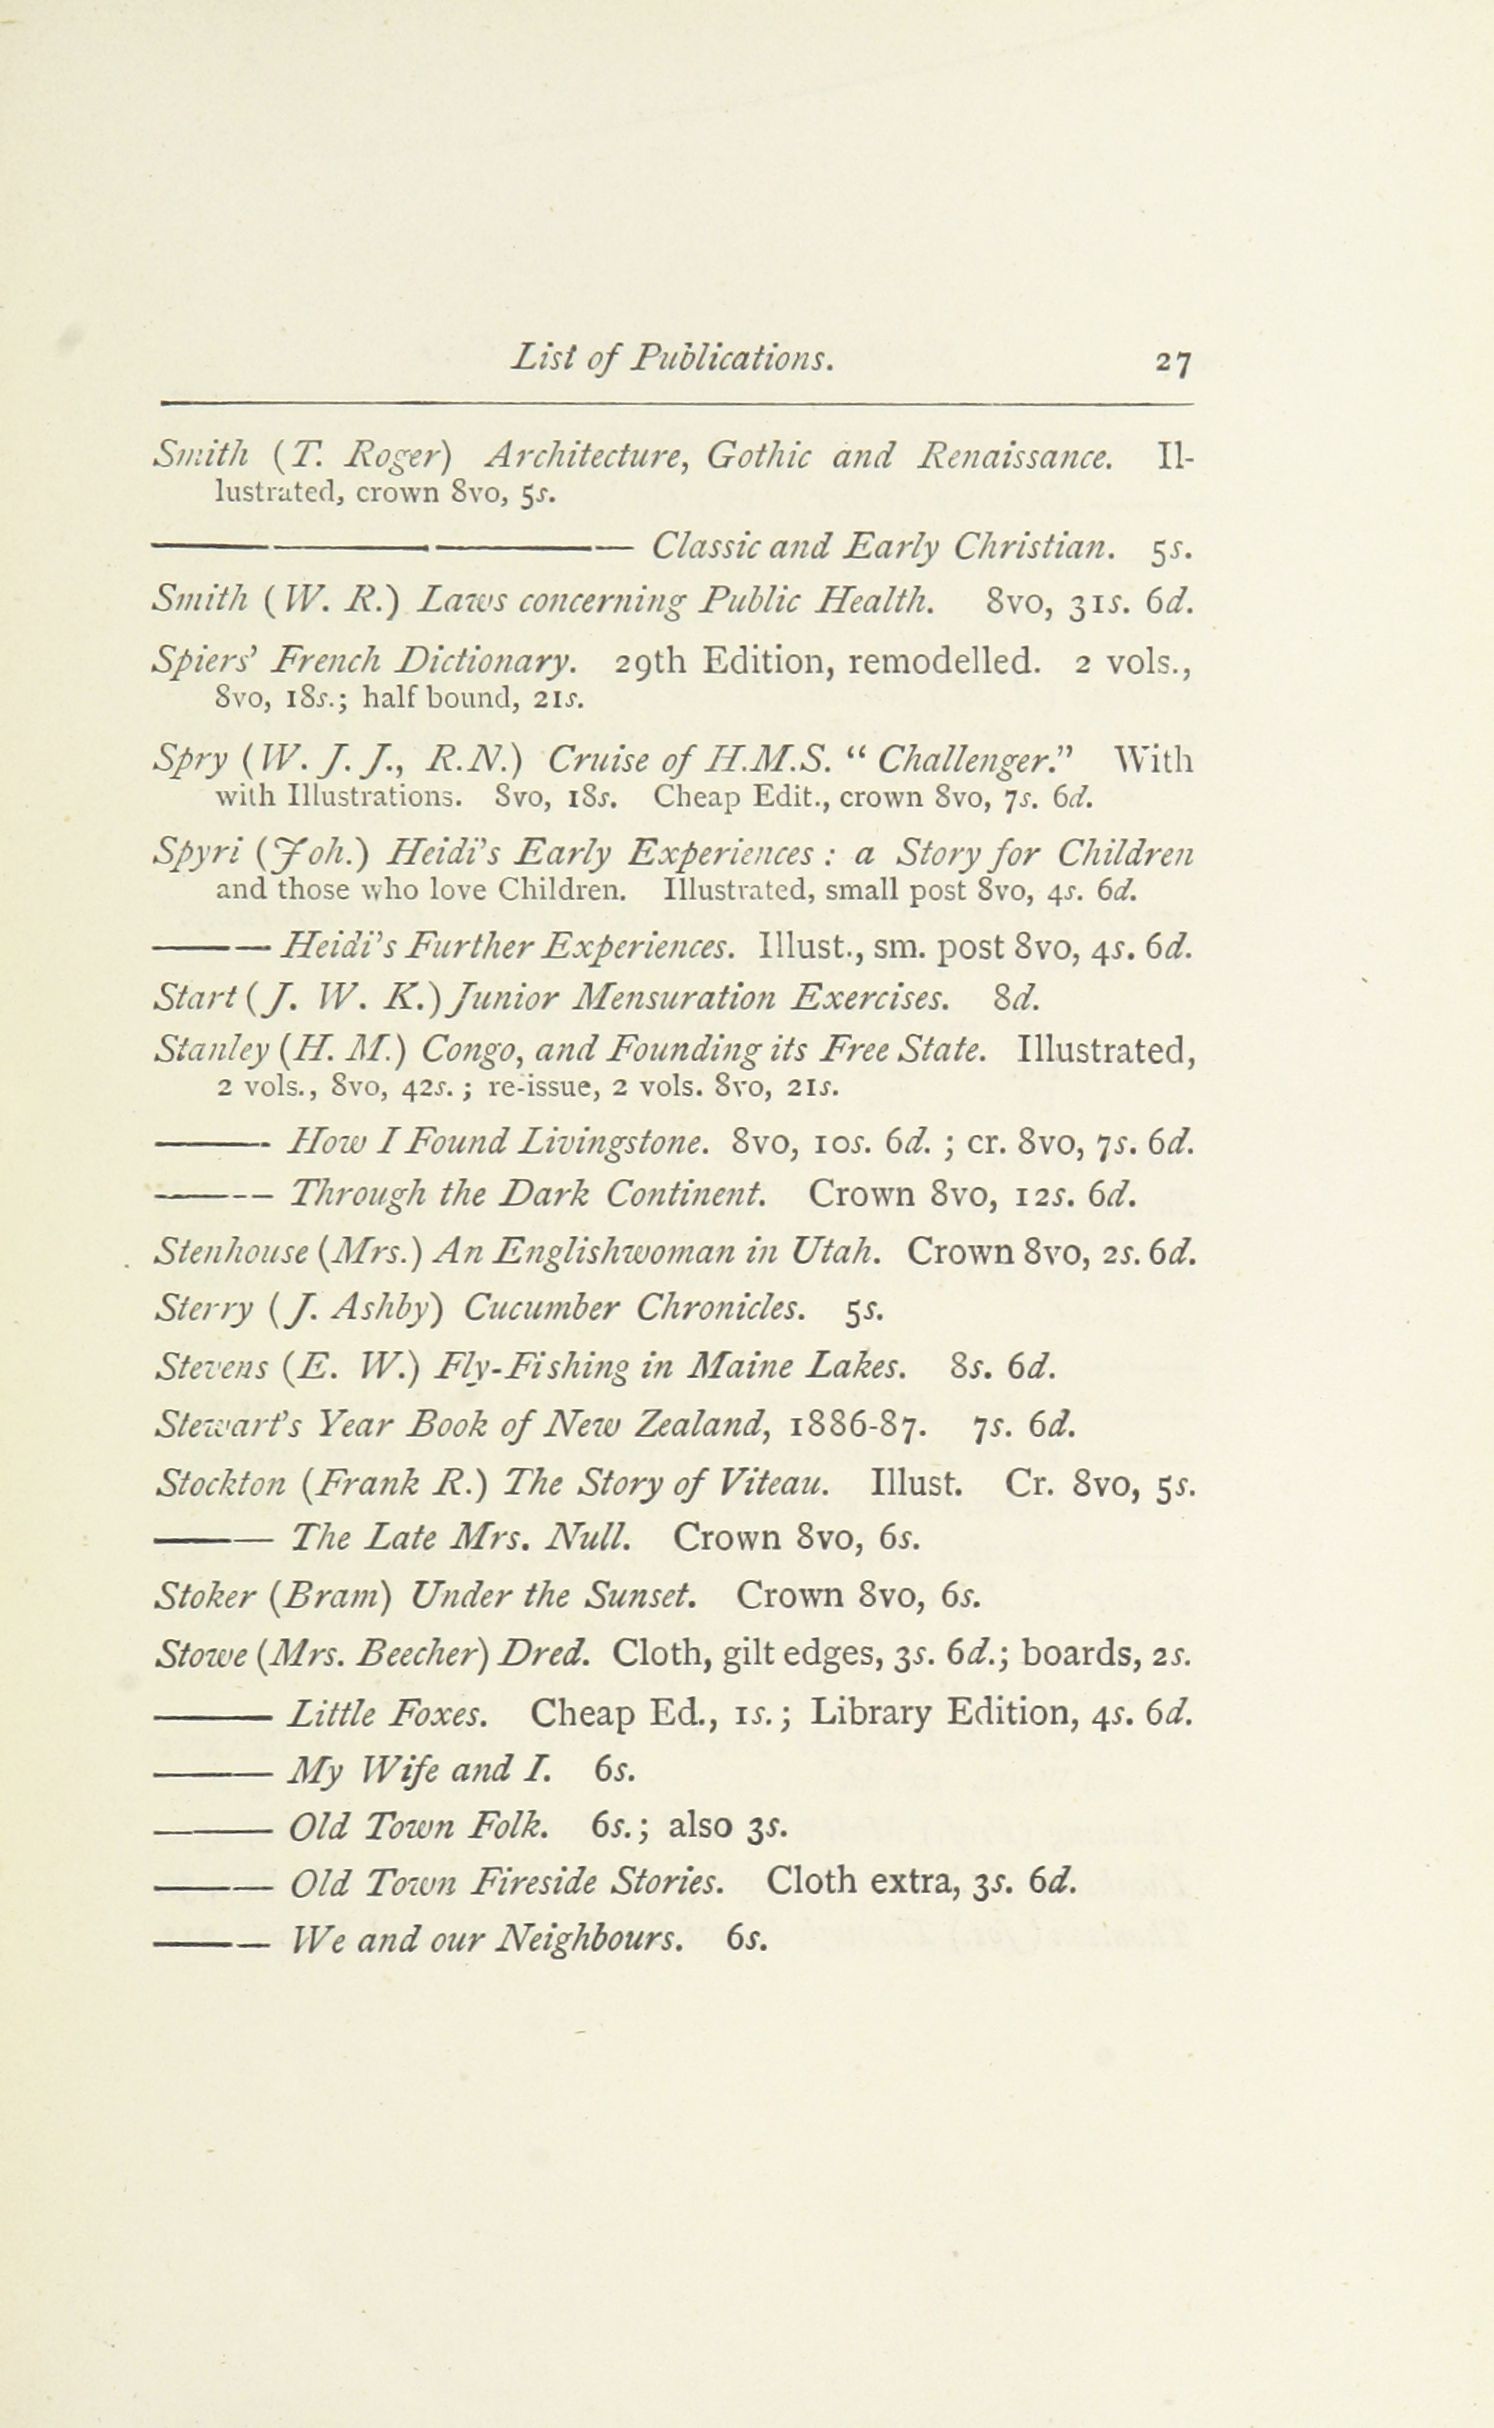 List of Publications. 27
Smith (T. Roger) Architecture, Gothic and Renaissance. Il-
lustrated, crown 8vo, 5s.
——— Classic and Early Christian. 5s.
Smith (W. R.) Laws concerning Public Health. 8vo, 31s. 6d.
Spiers' French Dictionary. 29th Edition, remodelled. 2 vols.,
8vo, 18s.; half bound, 21s.
Spry (W. J. J., R.N.) Cruise of H.M.S. “Challenger.” With
with Illustrations. 8vo, 18s. Cheap Edit., crown 8vo, 7s. 6d.
Spyri (Joh.) Heidi's Early Experiences: a Story for Children
and those who love Children. Illustrated, small post 8vo, 4s. 6d.
——— Heidi's Further Experiences. Illust., sm. post 8vo, 4s. 6d.
Start (J. W. K.) Junior Mensuration Exercises. 8d.
Stanley (H. M.) Congo, and Founding its Free State. Illustrated,
2 vols., 8vo, 42s.; re-issue, 2 vols. 8vo, 21s.
——— How I Found Livingstone. 8vo, 10s. 6d.; cr. 8vo, 7s. 6d.
——— Through the Dark Continent. Crown 8vo, 12s. 6d.
Stenhouse (Mrs.) An Englishwoman in Utah. Crown 8vo, 2s. 6d.
Sterry (J. Ashby) Cucumber Chronicles. 5s.
Stevens (E. W.) Fly-Fishing in Maine Lakes. 8s. 6d.
Stewart's Year Book of New Zealand, 1886-87. 7s. 6d.
Stockton (Frank R.) The Story of Viteau. Illust. Cr. 8vo, 5s.
——— The Late Mrs. Null. Crown 8vo, 6s.
Stoker (Bram) Under the Sunset. Crown 8vo, 6s.
Stowe (Mrs. Beecher) Dred. Cloth, gilt edges, 3s. 6d.; boards, 2s.
——— Little Foxes. Cheap Ed., 1s.; Library Edition, 4s. 6d.
——— My Wife and I. 6s.
——— Old Town Folk. 6s.; also 3s.
——— Old Town Fireside Stories. Cloth extra, 3s. 6d.
——— We and our Neighbours. 6s.